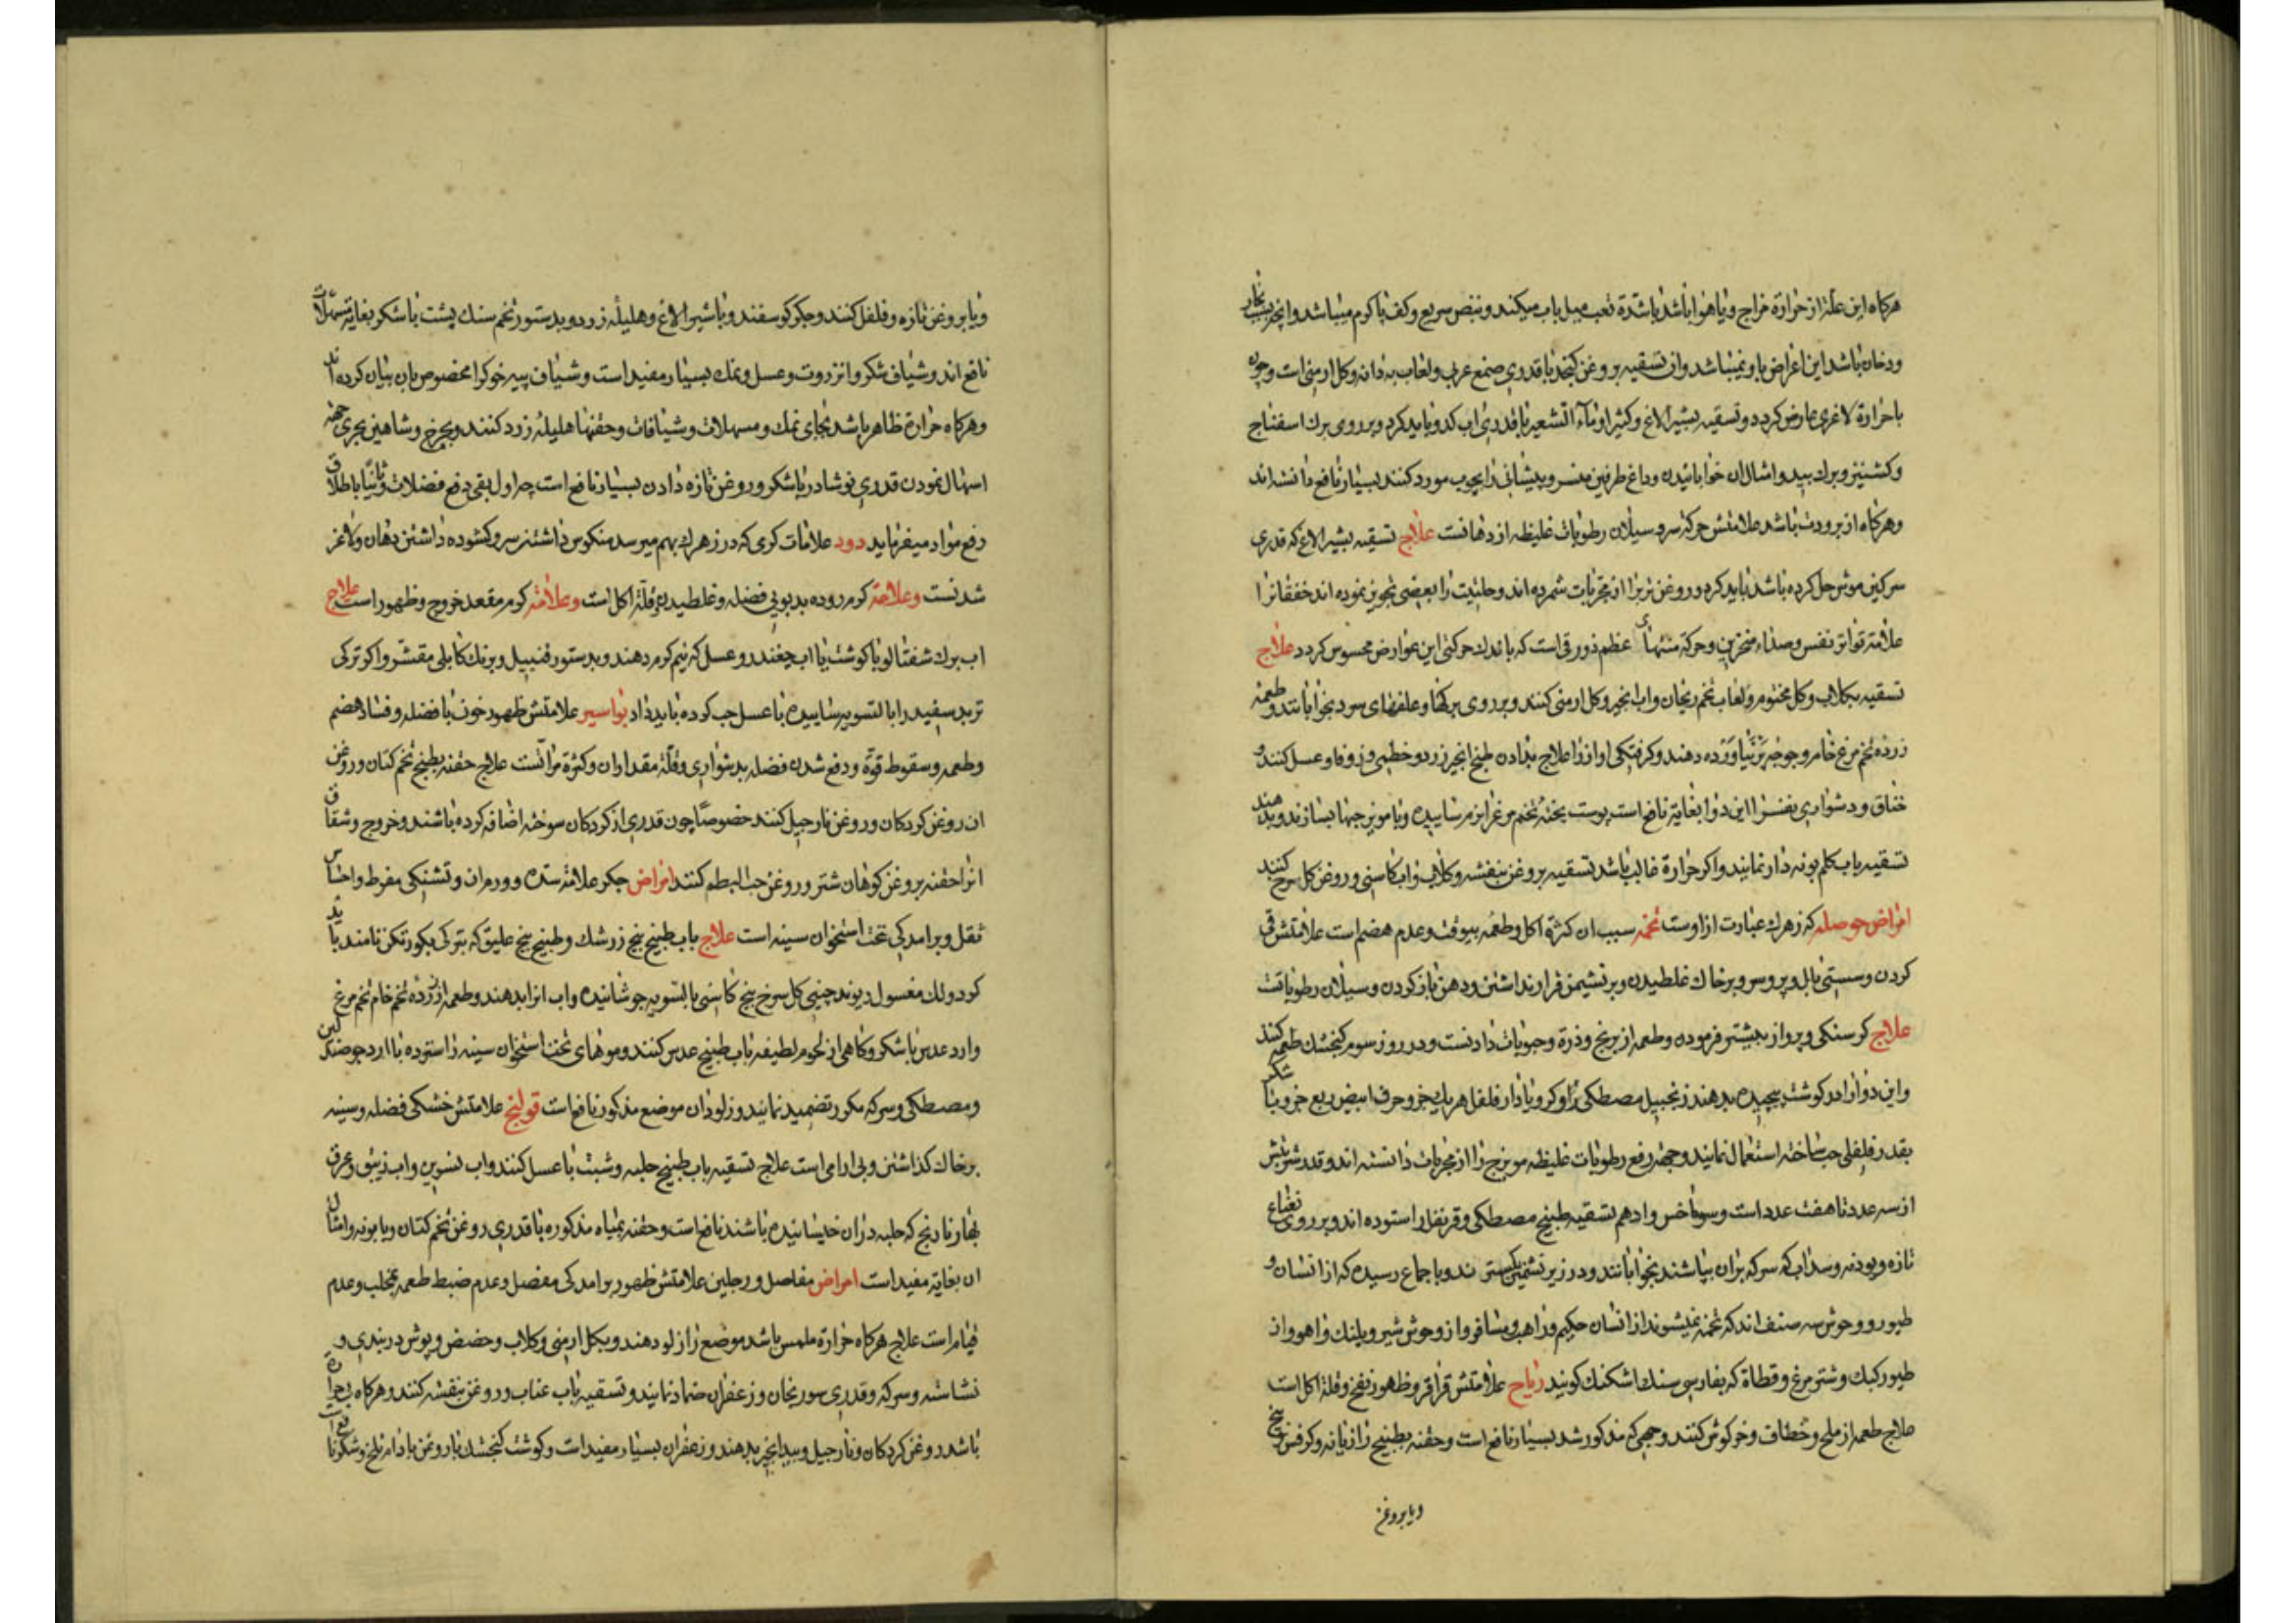 هرکاه این علة از حرارة خراج و یا هوا باشد باشدة تعب میل باب میکند و نبض سریع و کف پا کرم میباشد و انچه بسبب بخار
و دخان باشد این اعراض با و نمیباشد وان تسقیه بروغن کنجد با قدری صمغ عربی و لعاب به دانه و کل ارمنی است و چون
با حرارة لاغری عارض کردد و تسقیه بشیر الاغ و کثیرا و ماء الشعیر با قدری اب کدو باید کرد و بر روی برک اسفناج
و کشنیز و برک بید و امثال ان خوابانیدن و داغ طرفین منسر و پیشانی را بچوب مورد کنند بسیار نافع دانسته اند
و هرکاه از برودت باشد علامتش حرکة سر و سیلان رطوبات غلیظه از دهانست علاج تسقیه بشیر الاغ که قدری
سرکین موش حل کرده باشد باید کرد و روغن تربرا از مجربات شمرده اند و حلتیت را بعضی تجویز نموده اند خفقانرا
علامة تواتر نفس و صداء منخرین و حرکة منتهای عظم زورقی است که باندک حرکتی این عوارض محسوس کردد علاج
تسقیه بکلاب و کل مختوم و لعاب تخم ریحان و اب انجیر و کل ارمنی کنند و بر روی برکها و علفهای سرد بخوابانند و طعمه
زرده تخم مرغ خام و جوجه دهند و کرفتکی اواز را علاج بدادن طبیخ انجیر زرد و خطمی و زوفا و عسل کنند و
خناق و دشواری نفسرا این دوا بغایة نافع است پوست بیخته تخم مرغ را نرم ساییده و با مویز حبها بسازند و بدهند
تسقیه باب کلم بونه دار نمایند و اکر حرارة غالب باشد تسقیه بروغن بنفشه و کلاب و اب کاسنی و روغن کل سرخ کنند
امراض حوصله که زهرک عبارت ازاوست تخمه سبب ان کثرة اکل و طعمه بیوقت و عدم هضم است علامتش قی
کردن و سستی بال و پر و سر و بر خاک غلطیدن و بر نشیمن قرار نداشتن و دهن باز کردن و سیلان رطوباتست
علاج کرسنکی و پرواز بیشتر فرموده و طعمه از برنج و ذرة و حبوبات دادنست و در روز سوم کنجشک طعمه کنند
و این دوا را در کوشت پیچیده بدهند زنجبیل مصطکی و کرویا دارفلفل هریک جزو حرف ابیض ربع جزو با شکر
بقدر فلفلی حب ساخته استعمال نمایند و جهة رفع رطوبات غلیظه مویزج را از مجربات دانسته اند و قدر شربتش
از سه عدد تا هفت عدد است و سوناخس و ادهم تسقیه طبیخ مصطکی و قرنفل را ستوده اند و بر روی نعناع
تازه و پودنه و سداب که سرکه بران بپاشند بخوابانند و در زیر نشیمن کسترند و باجماع رسیده که از انسان و
طیور و وحوش سه صنف اند که تخمه نمیشوند از انسان حکیم و راهب و مسافر و از وحوش شیر و پلنک و اهو و از
طیور کبک و شترمرغ و قطاة که بفارسی سنک اشکنک کویند ریاح علامتش قراقر و ظهور نفخ و قلة اکل است
علاج طعمه از ملخ و خطاف و خرکوش کنند و حبی که مذکور شد بسیار نافع است و حقنه بطبیخ رازیانه و کرفس بیخ
و یا بروغن
و یا بروغن تازه و فلفل کنند و جکر کوسفند و با شیر الاغ و هلیله زرد و بدستور تخم سنک پشت با شکر بغایة تسهیلات
نافع اند و شیاف شکر و انزروت و عسل و نمک بسیار مفید است و شیاف پیه خوک را مخصوص بان بیان کرده اند
و هرکاه حرارة ظاهر باشد بجای نمک و مسهلات و شیافات و حقنها هلیله زرد کنند و بچرخ و شاهین بحری جهة
اسهال نمودن قدری نوشادر با شکر و روغن تازه دادن بسیار نافع است چه اول بقی دفع فضلات و ثانیا باطلاق
رفع مواد میفرماید دود علامات کرمی که در زهرک بهم میرسد منکوس داشتن سر و کشوده داشتن دهان و لاغر
شدنست وعلامة کرم روده بدبویی فضله و غلطیدن و قلة اکل است وعلامة کرم مقعد خروج و ظهور است علاج
اب برک شفتالو با کوشت یا اب چغندر و عسل که نیم کرم دهند و بدستور قنبیل و برنک کابلی مقشر و اکر ترکی
تربد سفید را بالتسویه ساییده با عسل حب کرده باید داد بواسیر علامتش ظهور خون با فضله و فساد هضم
و طعمه و سقوط قوة و دفع شدن فضله بدشواری و قلة مقدار ان و کثرة مراتست علاج حقنه بطبیخ تخم کتان و روغن
ان روغن کردکان و روغن نارجیل کنند خصوصا چون قدری از کردکان سوخته اضافه کرده باشند و خروج و شقاق
انرا حقنه بروغن کوهان شتر و روغن حب البطم کنند امراض جکر علامة سده و ورم ان و تشنکی مفرط و احساس
ثقل و برامدکی تحت استخوان سینه است علاج باب طبیخ بیخ زرشک و طبیخ بیخ علیق که بترکی بکورتکن نامند باید
کرد و لک مغسول ریوند چینی کل سرخ بیخ کاسنی بالتسویه جوشانیده و اب انرا بدهند و طعمه از زرده تخم خام تخم مرغ
و ارد عدس با شکر و کاهی از لحوم لطیفه باب طبیخ عدس کنند و موهای تحت استخوان سینه را ستوده با ارد جو صندلین
و مصطکی و سرکه مکرر تضمید نمایند و زلو دران موضع مذکور نافع است قولنج علامتش خشکی فضله و سینه
برخاک کذاشتن و بی ارامی است علاج تسقیه باب طبیخ حلبه و شبت با عسل کنند و اب نسرین و اب زنبق و عرق
بهار نارنج که حلبه دران خیسانیده باشند نافع است و حقنه بمیاه مذکوره با قدری روغن تخم کتان و بابونه و امثال
ان بغایة مفید است امراض مفاصل و رجلین علامتش ظهور برامدکی مفصل و عدم ضبط طعمه بمخلب و عدم
قیام است علاج هرکاه حرارة ملمس باشد موضع را زلو دهند و بکل ارمنی و کلاب و حضض و پوش دربندی و
نشاسته و سرکه و قدری سورنجان و زعفران ضماد نمایند و تسقیه باب عناب و روغن بنفشه کنند و هرکاه بی حرارة
باشد روغن کردکان و نارجیل و بیدانجیر بدهند و زعفران بسیار مفید است و کوشت کنجشک با روغن بادام تلخ و شکر نافع است